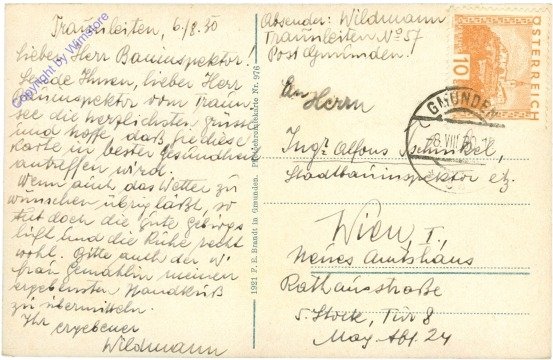 Traunleiten, 6/8.30
Lieber Herr Bauinspektor!
Sende Ihnen, lieber Herr
Bauinspektor vom Traun-
see die herzlichsten Grüsse
und hoffe, daß Sie diese
Karte in bester Gesundheit
antreffen wird.
Wenn auch das Wetter zu
wünschen übrig läßt, so
tut doch die gute Gebirgs-
luft und die Ruhe recht
wohl. Bitte auch der w'
Frau Gemahlin meinen
ergebensten Handkuß
zu übermitteln.
Ihr ergebener
Wildmann
Copyright by Wimstore
1921 F. E. Brandt in Gmunden. Photochromiekarte Nr. 976
Absender: Wildmann
Traunleiten No 57
Post Gmunden.
ÖSTERREICH
10
GMUNDEN
VIII
An
Herrn
Ingr Alfons
Stadtbauinspektor etz.
Wien, I.,
Neues Amtshaus
Rathausstraße
5. Stock, Tür 8
Mag. Abt. 24